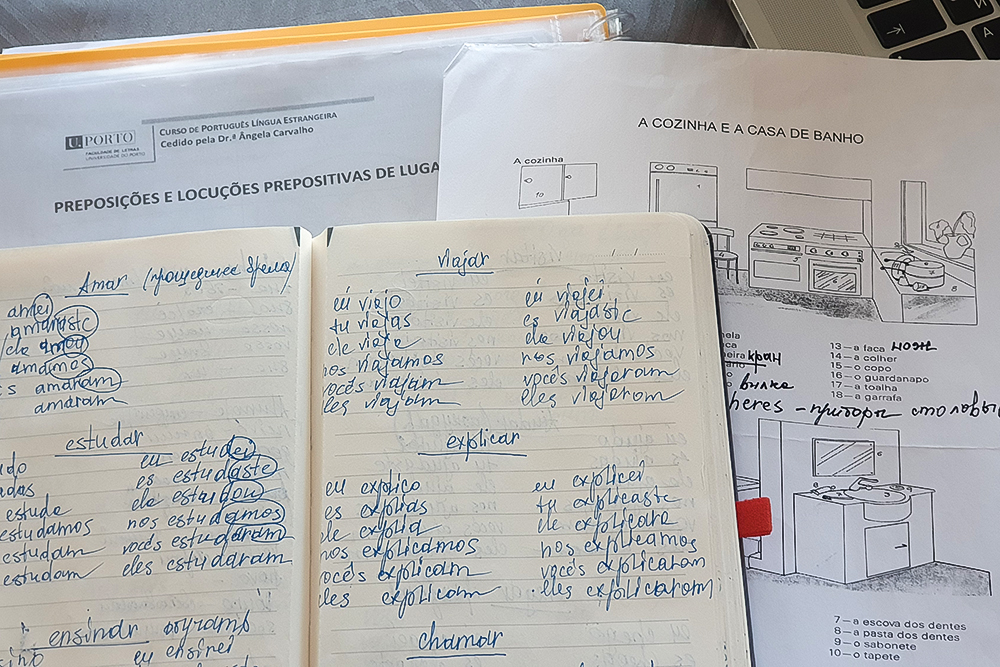 U.PORTO
FACULDADE DE LETRAS
UNIVERSIDADE DO PORTO
CURSO DE PORTUGUÊS LÍNGUA ESTRANGEIRA
Cedido pela Dr.ª Ângela Carvalho
PREPOSIÇÕES E LOCUÇÕES PREPOSITIVAS DE LUGA
A COZINHA E A CASA DE BANHO
A cozinha
10
13 — a faca нож
14 — a colher
15 — o copo
16 — o guardanapo
17 — a toalha
18 — a garrafa
nela
eira кран
вилка
heres - приборы столовы
7 — a escova dos dentes
8 — a pasta dos dentes
9 — o sabonete
10 — o tapete
Amar (прошедшее время)
amei
amaraste
ele amou
amamos
amaram
amaram
estudar
udo eu estudei
es estudaste
estuda ele estudou
estudamos nos estudamos
estudam vocês estudaram
estudam eles estudaram
ensinar
eu ensinei
viajar
eu viajo eu viajei
tu viajas es viajaste
ele viaja ele viajou
nos viajamos nos viajamos
vocês viajam vocês viajaram
eles viajam eles viajaram
explicar
eu explico eu explicei
es explias tu explicaste
ele explia ele explicara
nos explicamos nos explicamos
vocês explicam vocês explicaram
eles explicam eles explicaram
chamar